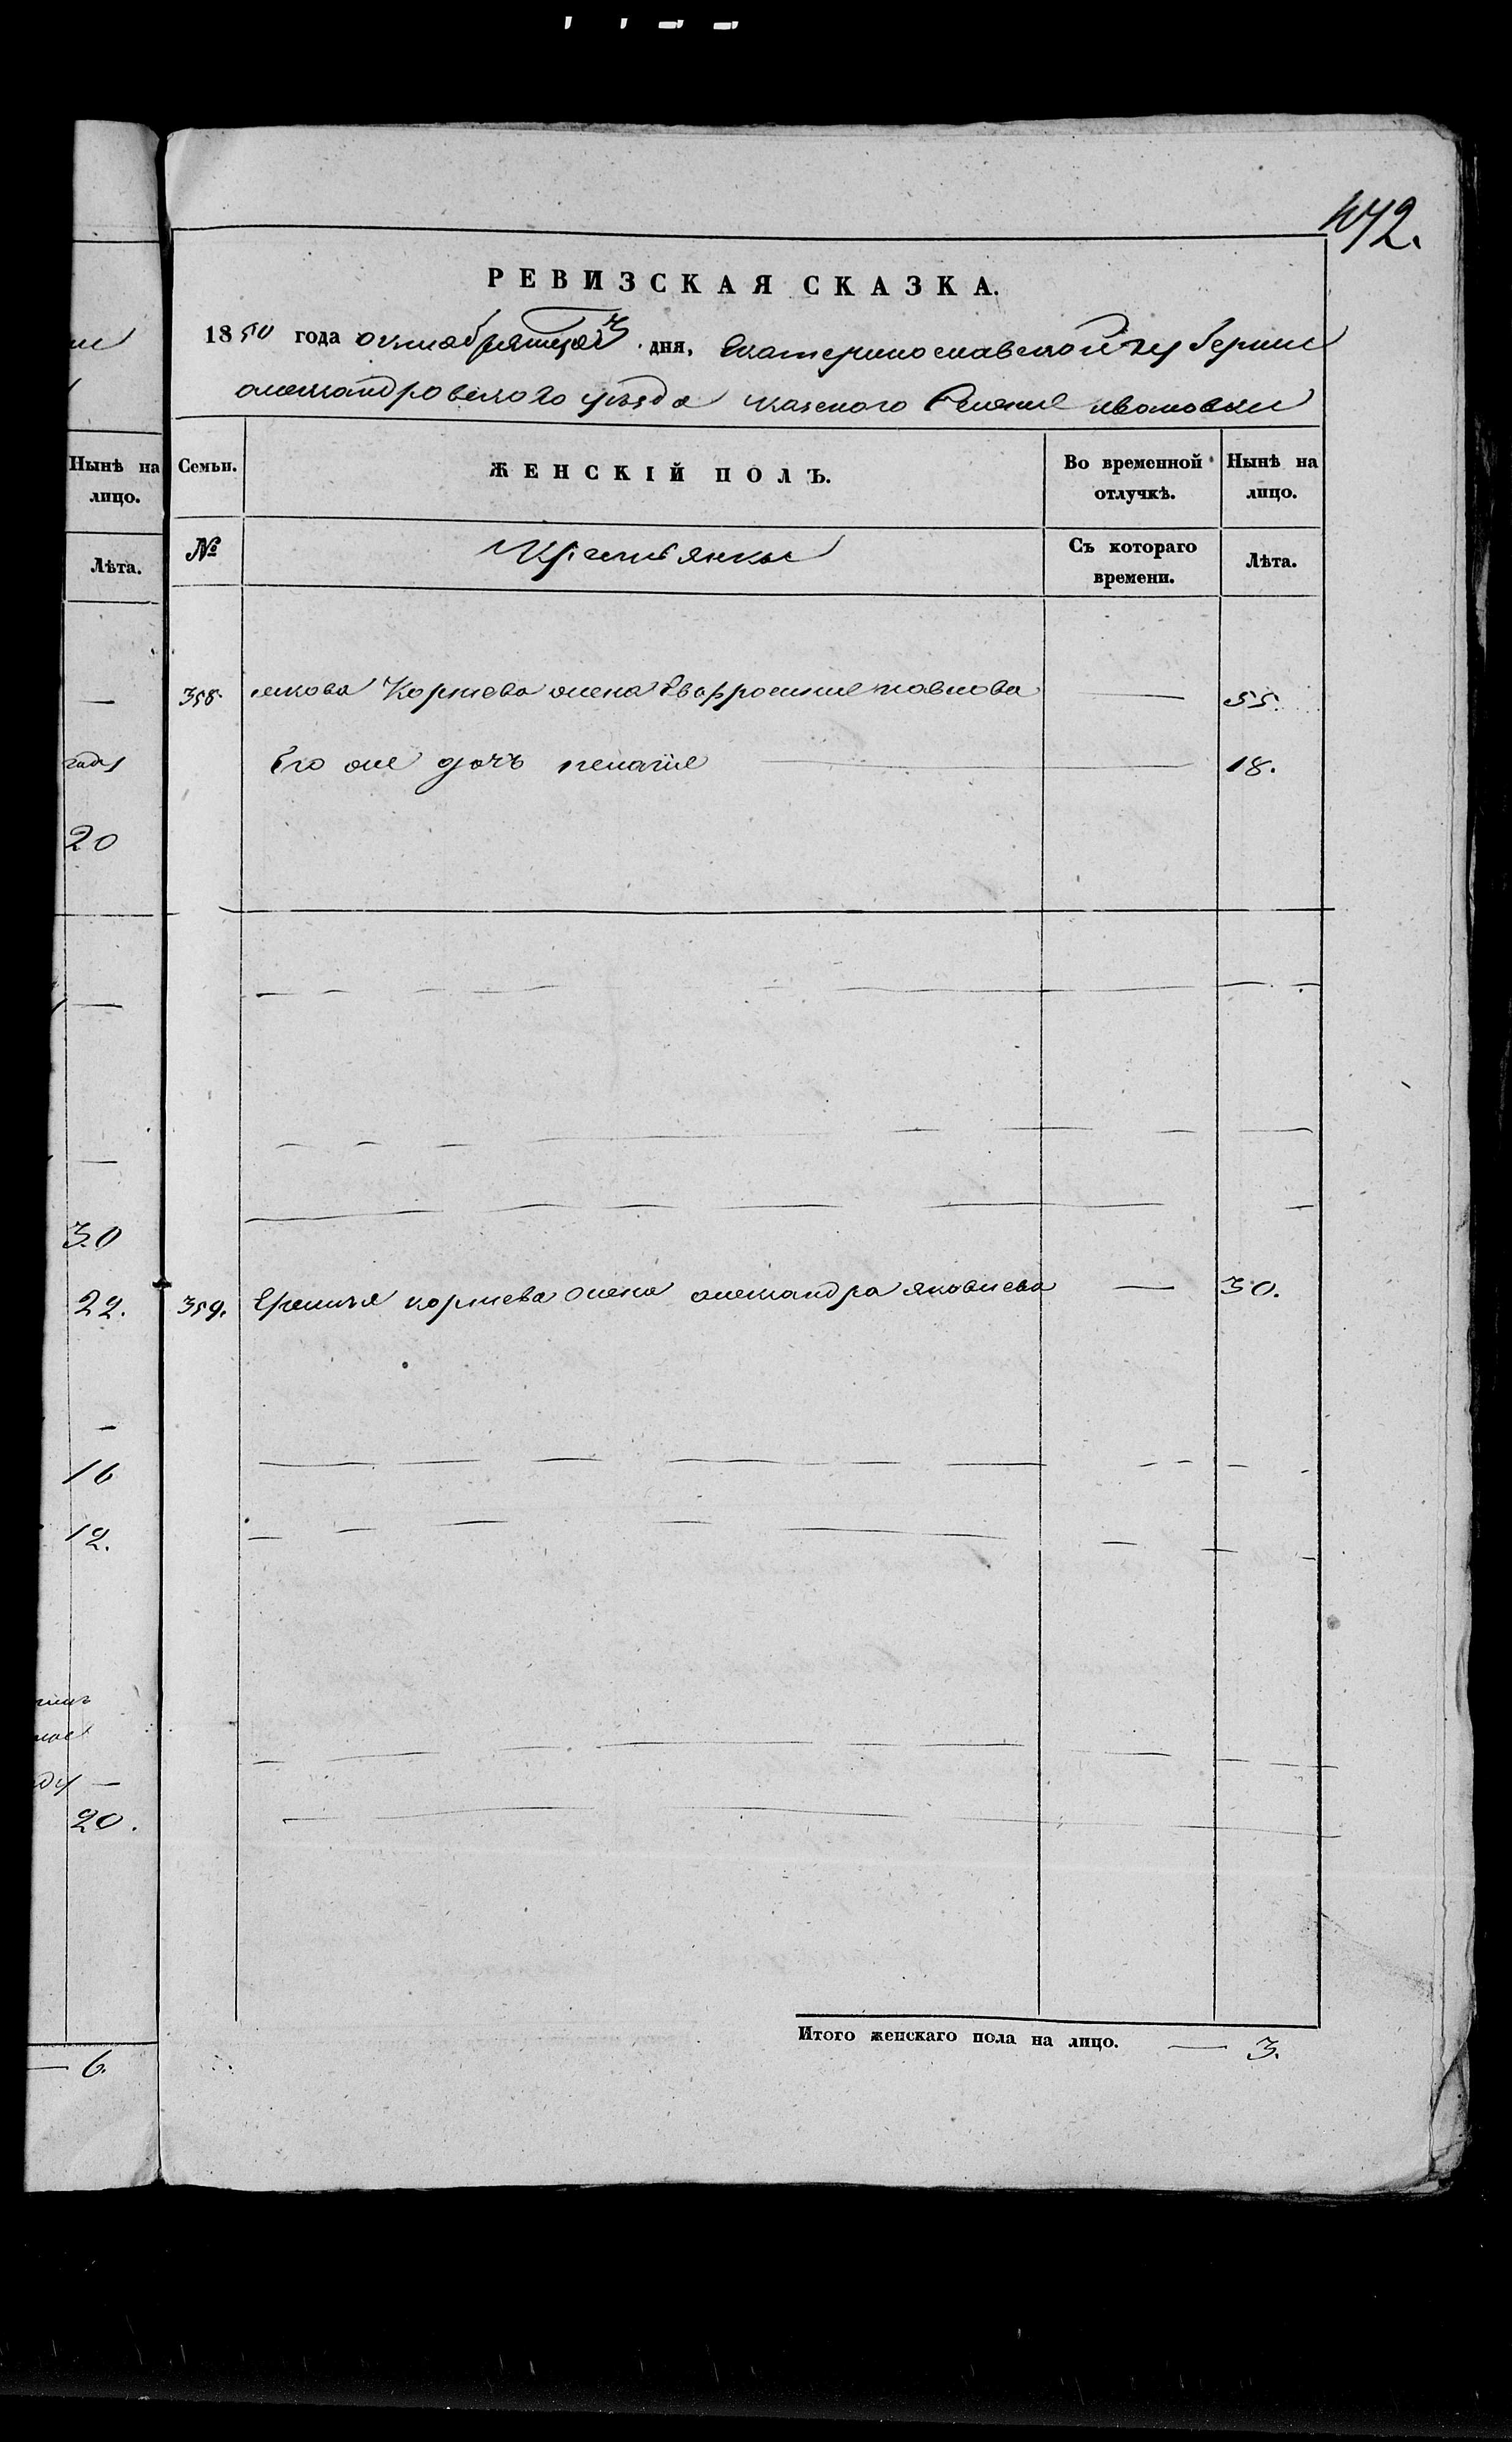 472.
РЕВИЗСКАЯ СКАЗКА.
1850 года октября месяца 3 дня, Екатеринославской губернии
александровского уезда казеного Селения ивановки
Нынѣ на
лицо.
Семьи.
ЖЕНСКІЙ ПОЛЪ.
Во временной
отлучкѣ.
Нынѣ на
лицо.
Лѣта.
№
Крестьянки
Съ котораго
времени.
Лѣта.
358. якова Корнева жена Евфросиния павлова — 55.
Его же дочъ пелагия — 18.
году
20
30
22.
359. Еремея корнева жена александра яковлева — 30.
16
12.
20.
Итого женскаго пола на лицо. — 3.
— 6.